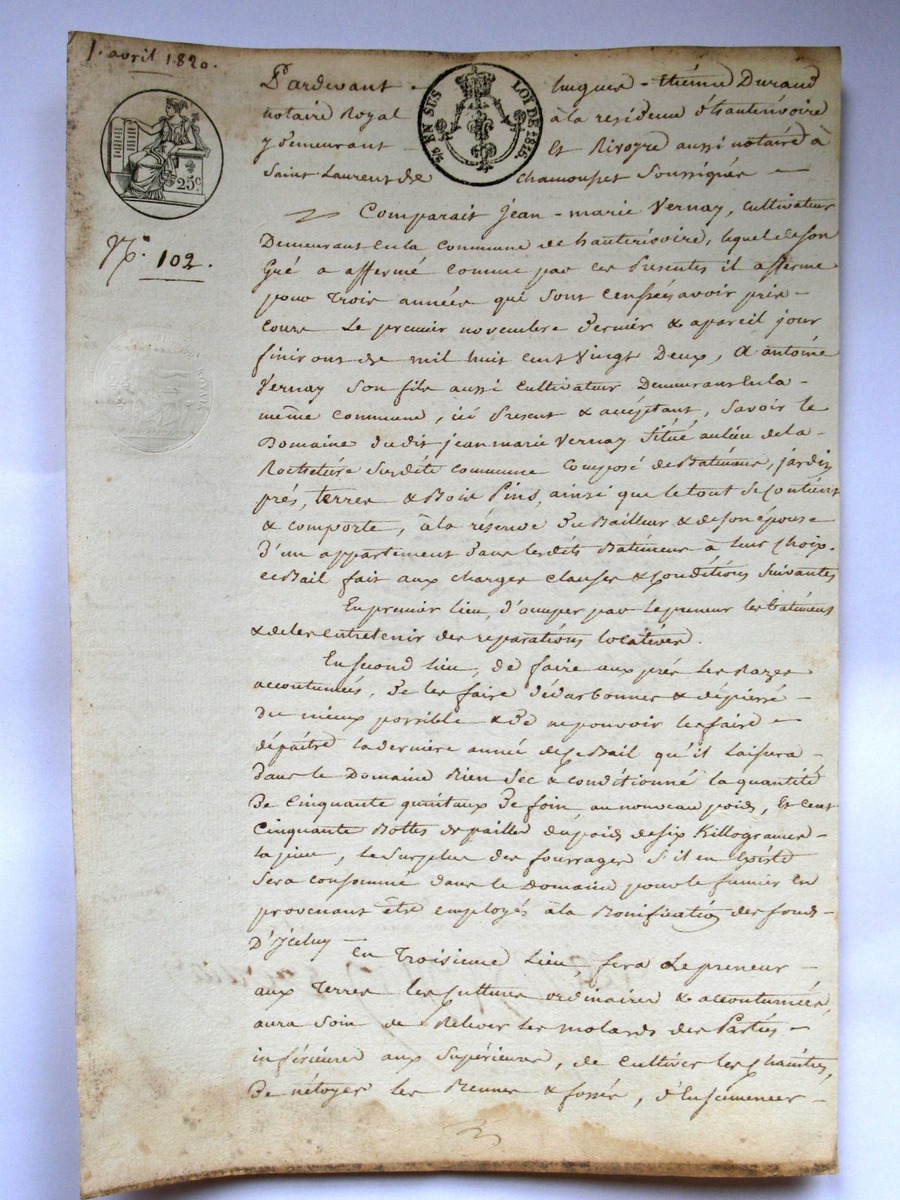 1. avril 1820.
Pardevant hugues-Etiénne Durand
notaire Royal à la residence d'hauterivoire
y demeurant Et Rivoyre aussi notaire à
Saint Laurent de chamousset Soussignés
EN SUS LOI DE 1816.
25c.
N.° 102.
Comparait Jean-marie Vernay, cultivateur
Demeurant en la commune de hauterivoire, lequel de son
Gré a affermé comme par ces Presentes il afferme
pour Trois années qui sont censées avoir pris
cours Le premier novembre dernier & a pareil jour
finiront de mil huit cent vingt Deux, A antoine
Vernay son fils aussi cultivateur Demeurant en la
même commune, ici Present & acceptant, Savoir le
Domaine dudit jean marie Vernay situé au lieu de la
susdite commune composé de Batimens, jardin
prés, terres & Bois Pins, ainsi que le tout se contient
& comporte, à la réserve du Bailleur & de son épouse
d'un appartement dans lesdits Batimens à leur choix.
ce Bail fait aux charges clauses & conditions suivantes
En premier lieu, d'occuper par le preneur les batimens
& de les entretenir des réparations locatives.
En second lieu, de faire aux prés Les Razes
accoutumées, de les faire dédarbonner & dépierré
du mieux possible & de ne pouvoir les faire
dépaître la dernière année de ce Bail qu'il laissera
dans le Domaine Bien sec & conditionné la quantité
de cinquante quintaux de foin, au nouveau poids, Et cent
cinquante Bottes de pailles du poids de six Killogrames
la pièce, le surplus des fourrages s'il en Existe
sera consommé dans le domaine pour le fumier en
provenant être employés à la Bonification des fonds
D'Yceluy
En Troisieme Lieu, fera Le preneur
aux Terres les cultures ordinaires & accoutumées,
aura soin de Relever les molards des Parties
inférieures aux Supérieures, de cultiver les
De nétoyer les & fossés, d'Ensemencer